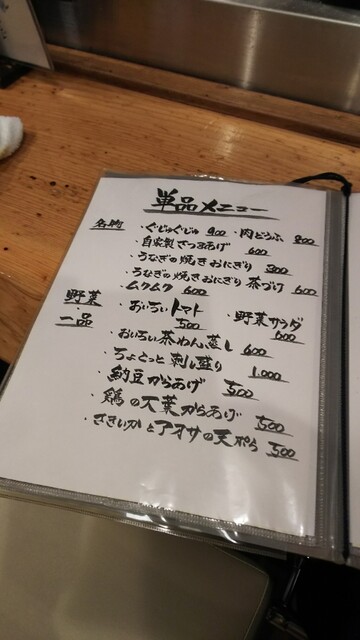 単品メニュー
名物
・ぐじゅぐじゅ 900 ・肉どうふ 800
・自家製さつまあげ 600
・うなぎの焼きおにぎり 300
・うなぎの焼きおにぎり茶づけ 600
・ムクムク 600
野菜
・おいちいトマト 500 ・野菜サラダ 600
一品
・おいちい茶わん蒸し 600
・ちょこっと刺し盛り 1.000
・納豆からあげ 500
・鶏の大葉からあげ 500
・さきいかとアオサの天ぷら 500